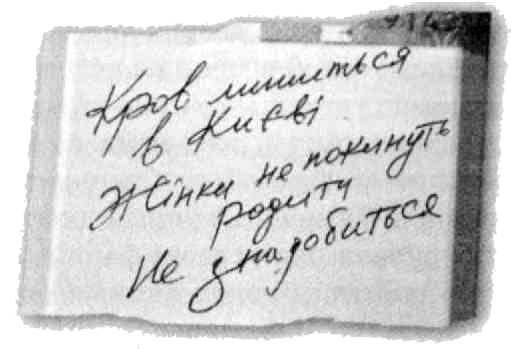 Кров лишиться
в Києві
Жінки не покинуть
родити
Не знадобиться